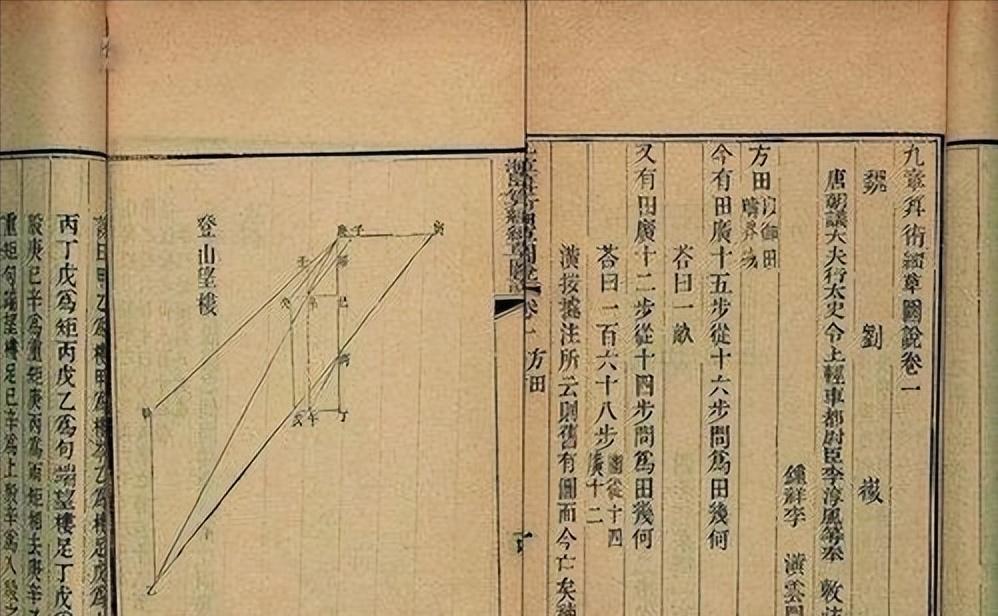 九章算術細草圖說卷一
魏 劉 徽
唐朝議大夫行太史令上輕車都尉臣李淳風等奉 敕注
鍾祥李 潢雲門
方田 以御田疇界域
今有田廣十五步從十六步問爲田幾何
荅曰一畝
又有田廣十二步從十四步問爲田幾何
荅曰一百六十八步 圖從十四廣十二
潢按據注所云則舊有圖而今亡矣
卷一 方田
海島算經細草圖說
子
庚
寅
壬
癸
辛
巳
丙
午
丁
乙
登山望樓
甲乙爲樓
丙丁戊爲矩丙戊乙爲句端望樓足丁戊
股庚巳辛爲重矩庚丙爲兩矩相去庚辛
重矩句端望樓足巳辛爲上股